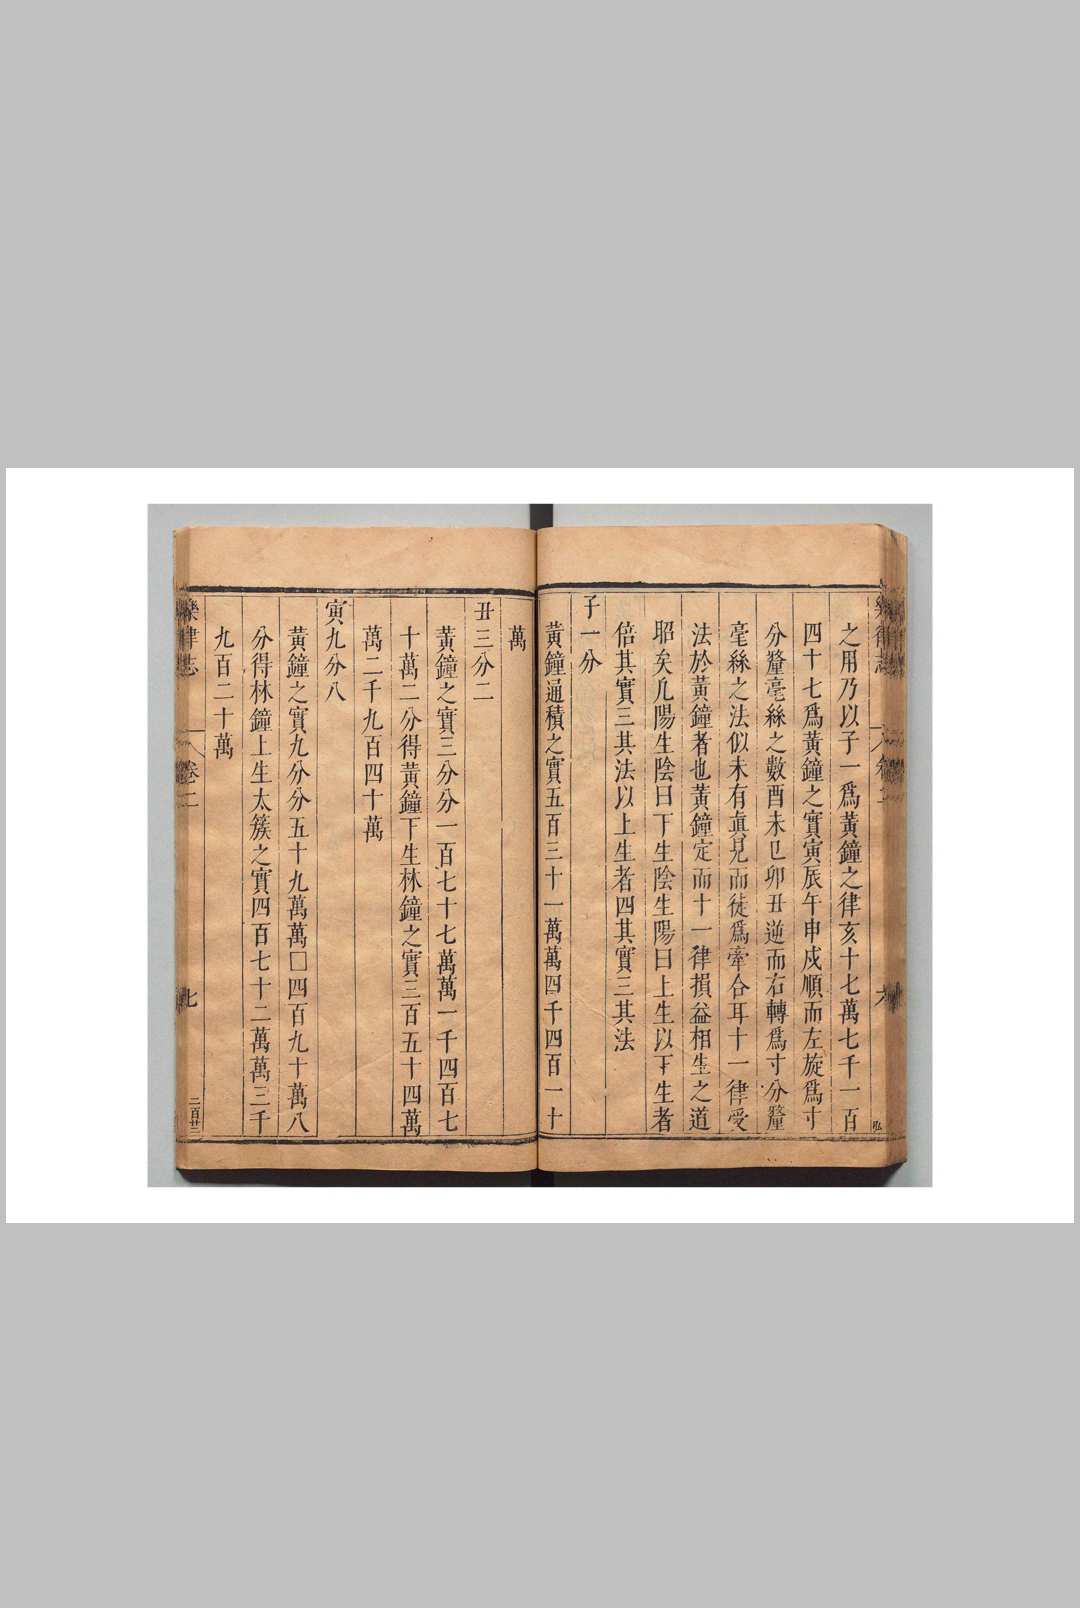 之用乃以子一爲黃鐘之律亥十七萬七千一百
四十七爲黃鐘之實寅辰午申戍順而左旋爲寸
分釐毫絲之數酉未巳卯丑逆而右轉爲寸分釐
毫絲之法似未有眞見而徒爲牽合耳十一律受
法於黃鐘者也黃鐘定而十一律損益相生之道
昭矣凡陽生陰曰下生陰生陽曰上生以下生者
倍其實三其法以上生者四其實三其法
子一分
黃鐘通積之實五百三十一萬萬四千四百一十
萬
丑三分二
黃鐘之實三分分一百七十七萬萬一千四百七
十萬二分得黃鐘下生林鐘之實三百五十四萬
萬二千九百四十萬
寅九分八
黃鐘之實九分分五十九萬萬□四百九十萬八
分得林鐘上生太簇之實四百七十二萬萬三千
九百二十萬
樂律志
卷二
七
二百廿三